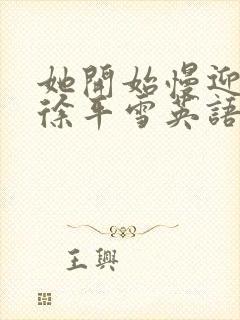 她開始慢迎
徐平雪英語
王興